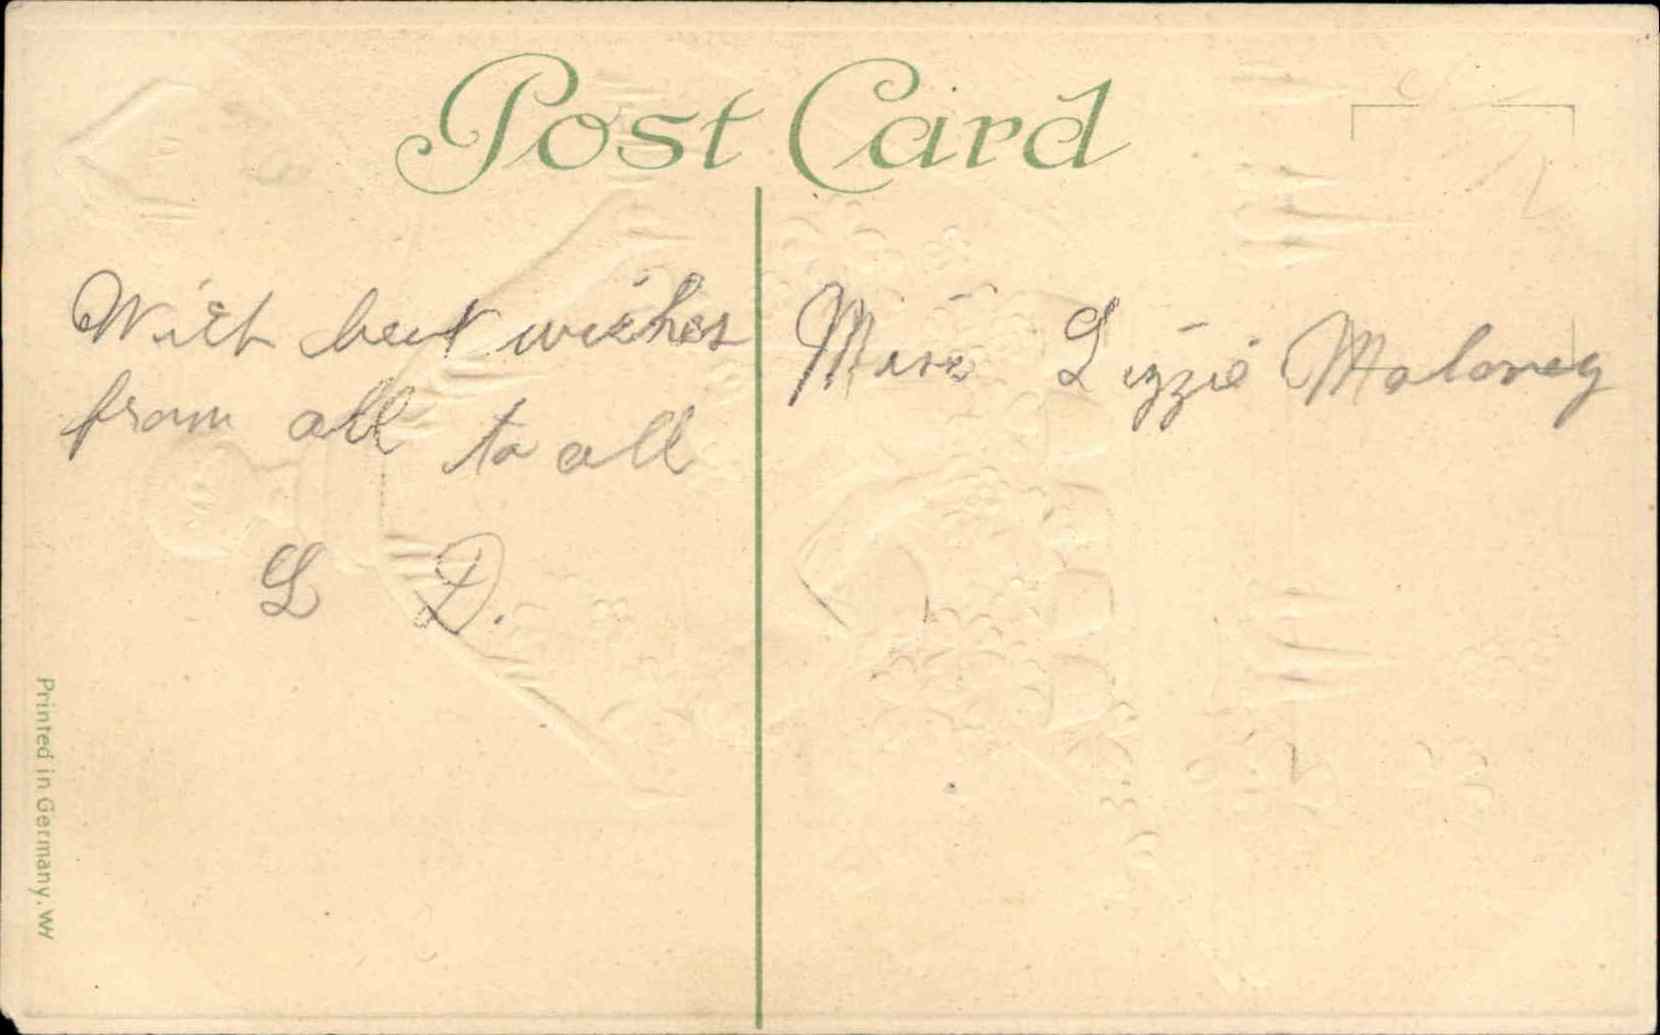 Post Card
With best wishes
from all to all
L D.
Miss Lizzie Maloney
Printed in Germany. W